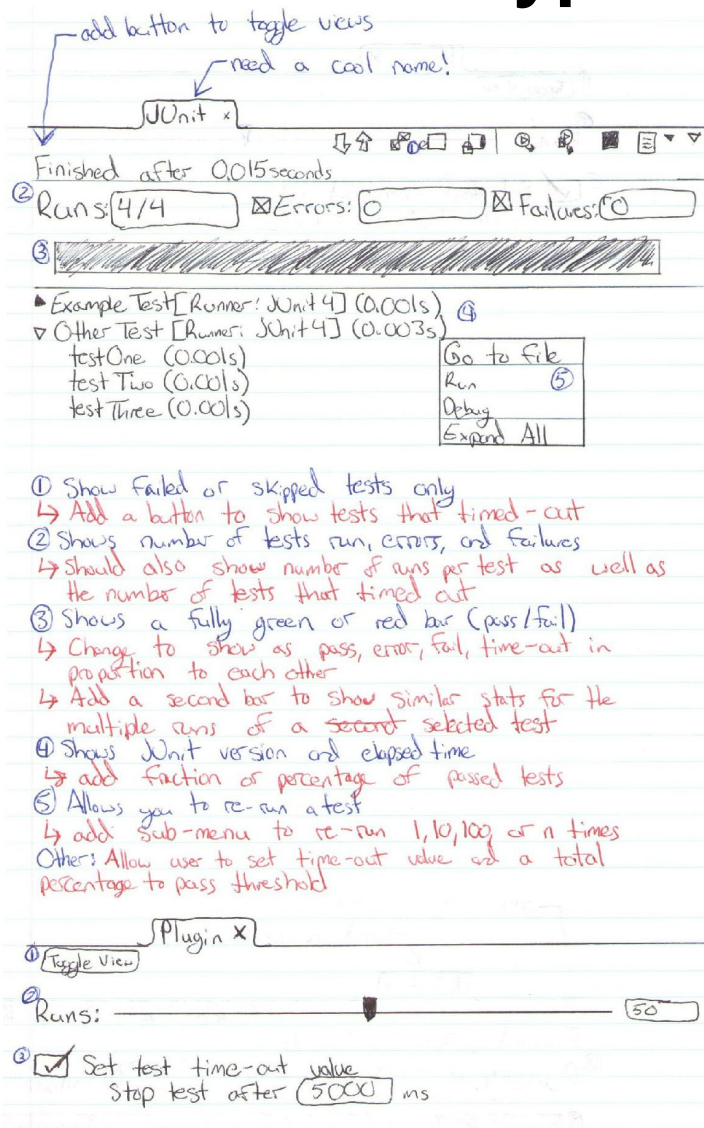 add button to toggle views
need a cool name!
JUnit x
Finished after 0.015 seconds
② Runs: 4/4 Errors: 0 Failures: 0
③
Example Test [Runner: JUnit 4] (0.001s) ④
Other Test [Runner: JUnit 4] (0.003s)
testOne (0.001s)
test Two (0.001s)
test Three (0.001s)
Go to file
Run ⑤
Debug
Expand All
① Show failed or skipped tests only
↳ Add a button to show tests that timed-out
② Shows number of tests run, errors, and failures
↳ Should also show number of runs per test as well as
the number of tests that timed out
③ Shows a fully green or red bar (pass/fail)
↳ Change to show as pass, error, fail, time-out in
proportion to each other
↳ Add a second bar to show similar stats for the
multiple runs of a second selected test
④ Shows JUnit version and elapsed time
↳ add fraction or percentage of passed tests
⑤ Allows you to re-run a test
↳ add sub-menu to re-run 1, 10, 100, or n times
Other: Allow user to set time-out value and a total
percentage to pass threshold
Plugin x
① Toggle View
② Runs: 50
③ Set test time-out value
Stop test after 5000 ms